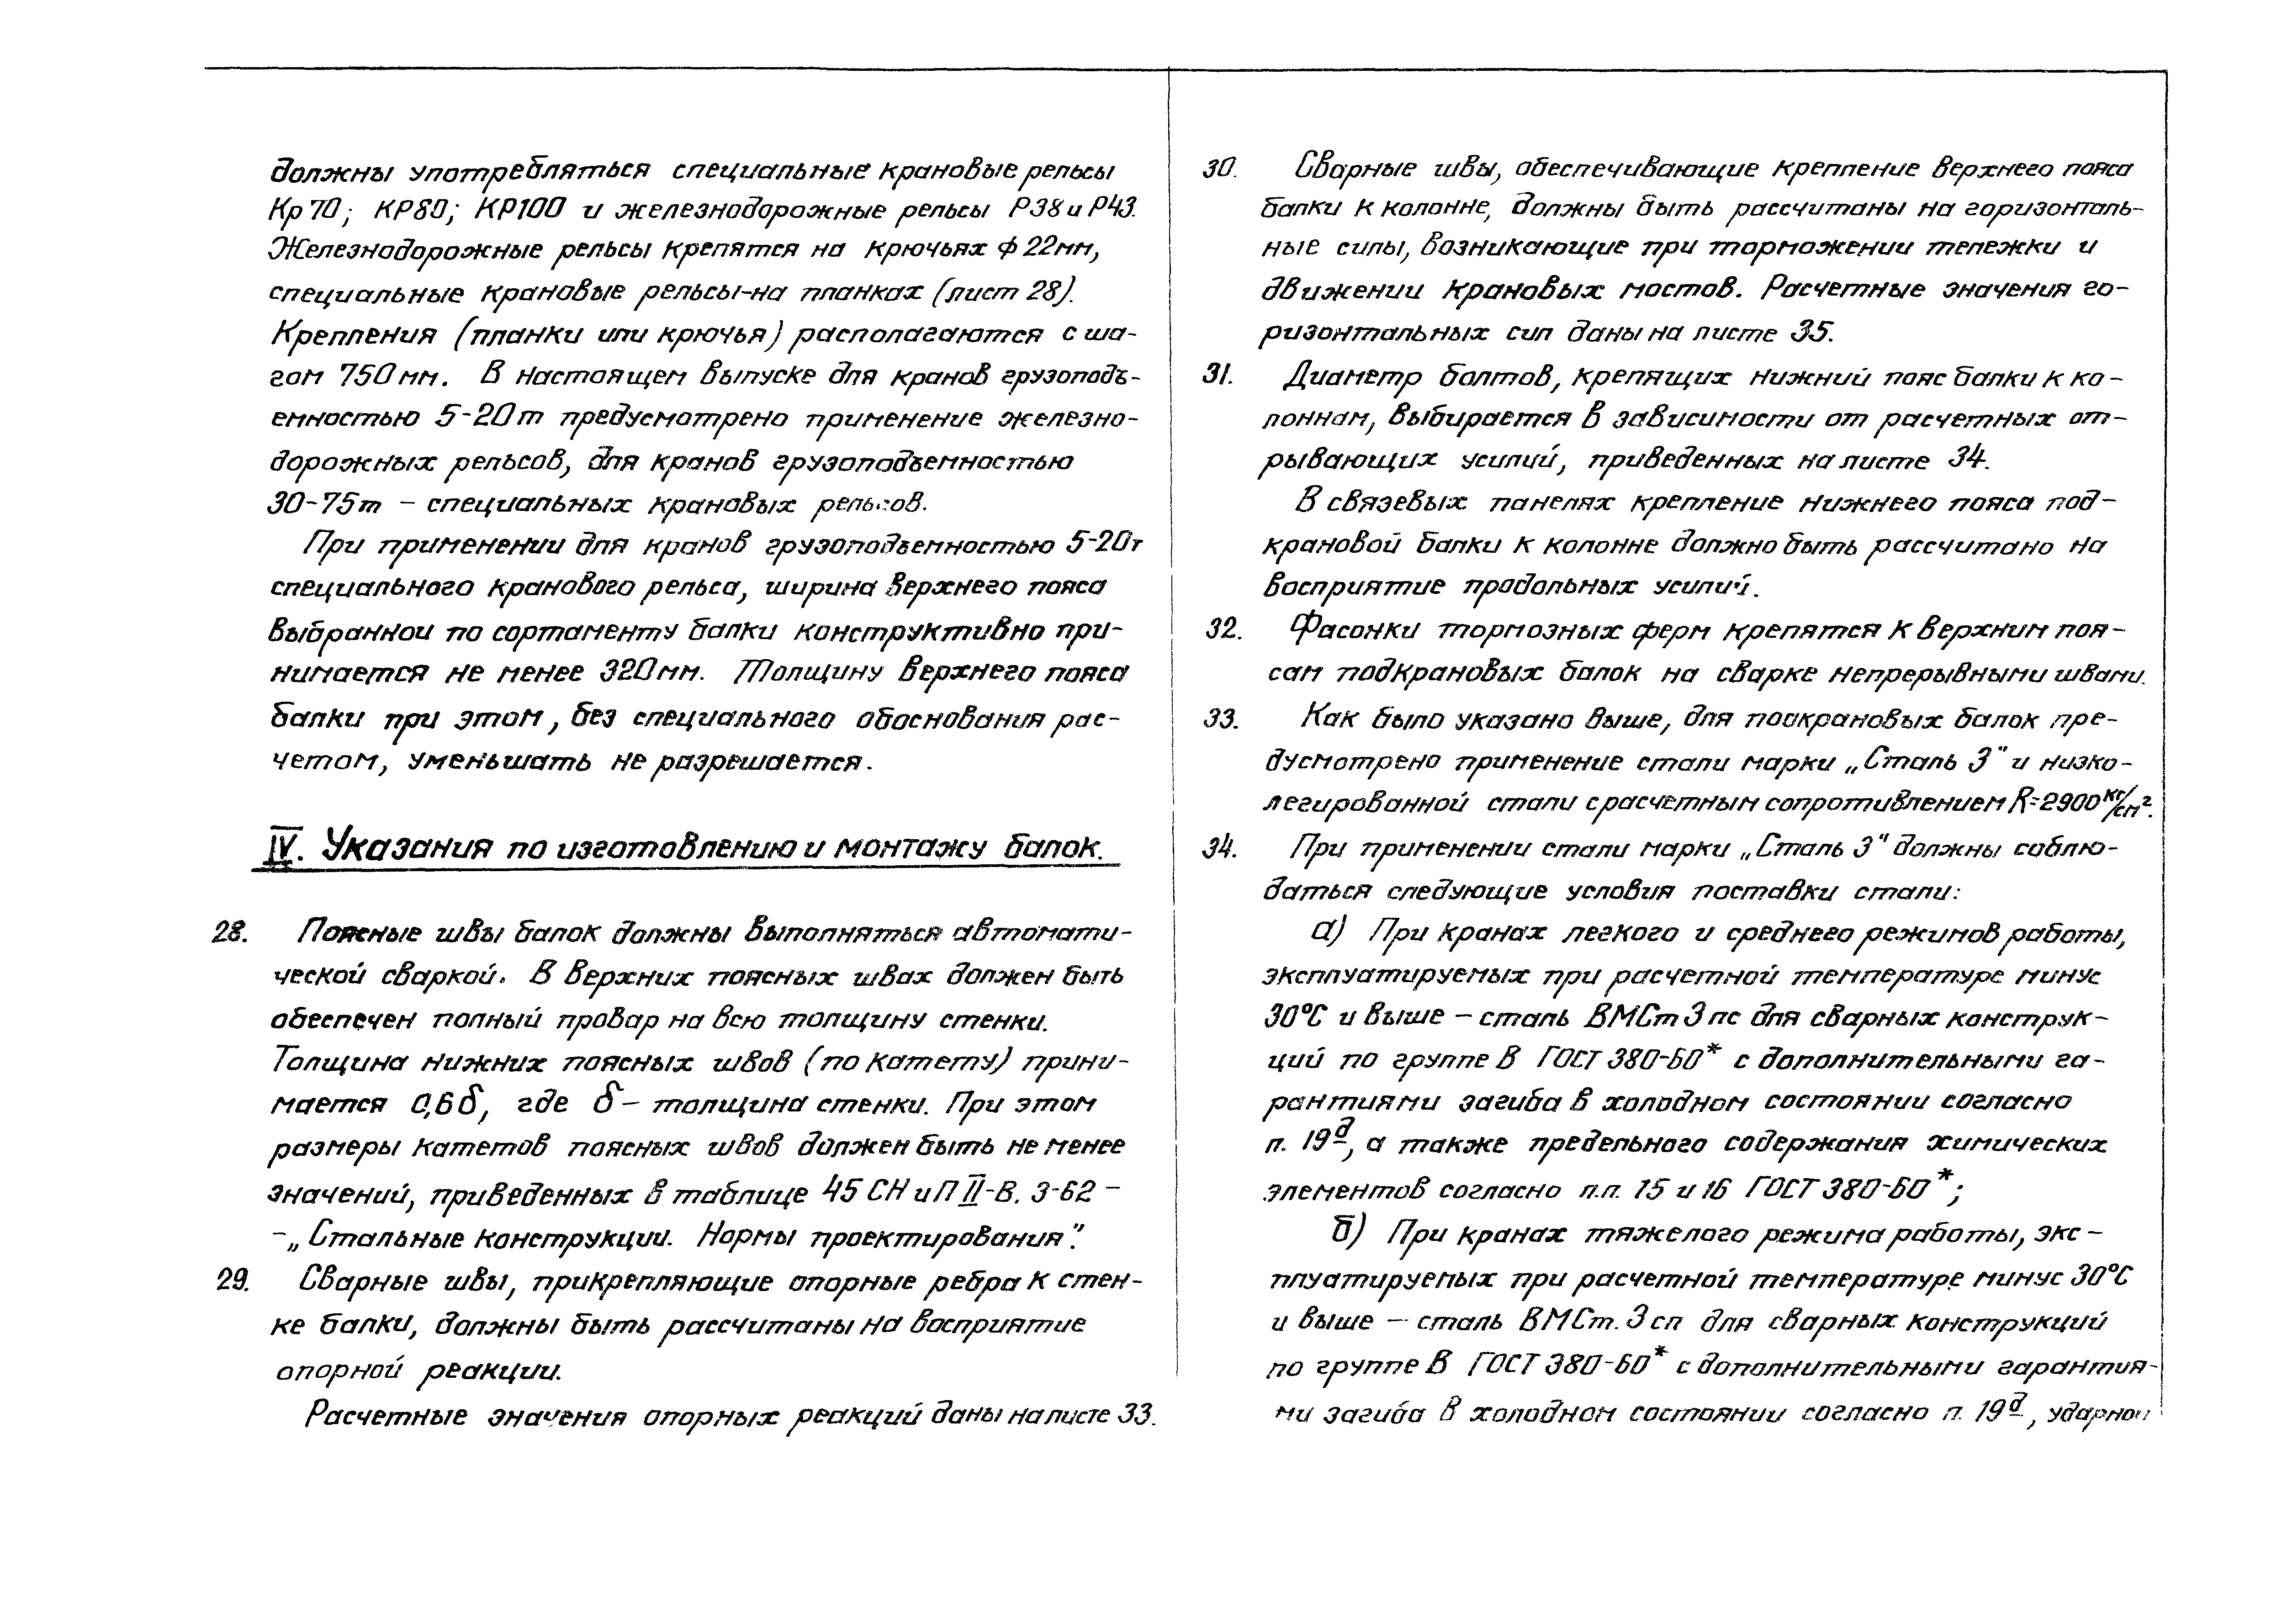 должны употребляться специальные крановые рельсы
Кр70; КР80; КР100 и железнодорожные рельсы Р38 и Р43.
Железнодорожные рельсы крепятся на крючьях ф 22мм,
специальные крановые рельсы-на планках (лист 28).
Крепления (планки или крючья) располагаются с ша-
гом 750мм. В настоящем выпуске для кранов грузоподъ-
емностью 5-20т предусмотрено применение железно-
дорожных рельсов, для кранов грузоподъемностью
30-75т – специальных крановых рельсов.
При применении для кранов грузоподъемностью 5-20т
специального кранового рельса, ширина верхнего пояса
выбранной по сортаменту балки конструктивно при-
нимается не менее 320мм. Толщину верхнего пояса
балки при этом, без специального обоснования рас-
четом, уменьшать не разрешается.
IV. Указания по изготовлению и монтажу балок.
28. Поясные швы балок должны выполняться автомати-
ческой сваркой. В верхних поясных швах должен быть
обеспечен полный провар на всю толщину стенки.
Толщина нижних поясных швов (по катету) прини-
мается 0,6δ, где δ – толщина стенки. При этом
размеры катетов поясных швов должен быть не менее
значений, приведенных в таблице 45 СН и П II-В. 3-62 –
–„Стальные конструкции. Нормы проектирования".
29. Сварные швы, прикрепляющие опорные ребра к стен-
ке балки, должны быть рассчитаны на восприятие
опорной реакции.
Расчетные значения опорных реакций даны на листе 33.
30. Сварные швы, обеспечивающие крепление верхнего пояса
балки к колонне, должны быть рассчитаны на горизонталь-
ные силы, возникающие при торможении тележки и
движении крановых мостов. Расчетные значения го-
ризонтальных сил даны на листе 35.
31. Диаметр болтов, крепящих нижний пояс балки к ко-
лоннам, выбирается в зависимости от расчетных от-
рывающих усилий, приведенных на листе 34.
В связевых панелях крепление нижнего пояса под-
крановой балки к колонне должно быть рассчитано на
восприятие продольных усилий.
32. Фасонки тормозных ферм крепятся к верхним поя-
сам подкрановых балок на сварке непрерывными швами.
33. Как было указано выше, для подкрановых балок пре-
дусмотрено применение стали марки „Сталь 3" и низко-
легированной стали с расчетным сопротивлением R=2900 кг/см².
34. При применении стали марки „Сталь 3" должны соблю-
даться следующие условия поставки стали:
а) При кранах легкого и среднего режимов работы,
эксплуатируемых при расчетной температуре минус
30°С и выше – сталь ВМСт 3 пс для сварных конструк-
ций по группе В ГОСТ 380-60* с дополнительными га-
рантиями загиба в холодном состоянии согласно
п. 19д, а также предельного содержания химических
элементов согласно п.п. 15 и 16 ГОСТ 380-60*;
б) При кранах тяжелого режима работы, экс-
плуатируемых при расчетной температуре минус 30°С
и выше – сталь ВМСт. 3 сп для сварных конструкций
по группе В ГОСТ 380-60* с дополнительными гарантия-
ми загиба в холодном состоянии согласно п. 19д, ударной